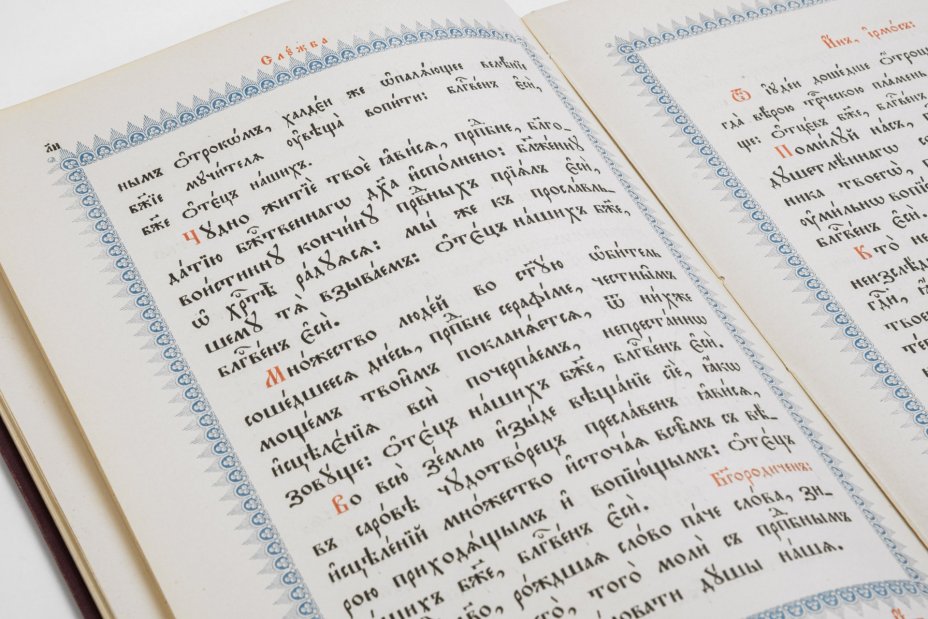 Слꙋ́жба
л҃и
ны́мъ ѻ҆трокѡ́мъ, халде́и же ѡ҆палѧ́ющее велѣ́нїе
бж҃їе мꙋчи́телѧ ᲂу҆вѣща̀ вопи́ти: блгⷭ҇ве́нъ є҆сѝ,
бж҃е ѻ҆тє́цъ на́шихъ.
Чꙋ́дно житїѐ твоѐ ꙗ҆ви́сѧ, прпⷣбне, блг҃о-
да́тїю бжⷭ҇твеннагѡ дх҃а и҆спо́лнено: бл҃же́ннꙋю
вои́стиннꙋ кончи́нꙋ првⷣныхъ прїѧ́лъ є҆сѝ,
ѡ҆ хрⷭ҇тѣ̀ ра́дꙋѧсѧ: мы́ же къ просла́вль-
шемꙋ тѧ̀ взыва́емъ: ѻ҆тє́цъ на́шихъ бж҃е,
блгⷭ҇ве́нъ є҆сѝ.
Мно́жество люде́й во ст҃ꙋ́ю ѡ҆би́тель
соше́дшеесѧ дне́сь, прпⷣбне серафі́ме, честны̑мъ
моще́мъ твои̑мъ покланѧ́етсѧ, ѿ ни́хже
и҆сцѣлє́нїѧ всѝ почерпа́емъ, непреста́ннѡ
зовꙋ́ще: ѻ҆тє́цъ на́шихъ бж҃е, блгⷭ҇ве́нъ є҆сѝ.
Во всю̀ зе́млю и҆зы́де вѣща́нїе сїѐ, ꙗ҆́кѡ
въ саро́вѣ чꙋдотво́рецъ пресла́венъ ꙗ҆ви́сѧ,
и҆сцѣле́нїй мно́жество и҆сточа́ѧ всѣ̑мъ съ вѣ́-
рою приходѧ́щымъ и҆ вопїю́щымъ: ѻ҆тє́цъ
на́шихъ бж҃е, блгⷭ҇ве́нъ є҆сѝ.
Бг҃оро́диченъ:
ро́ждшаѧ сло́во па́че сло́ва, зи-
того̀ молѝ съ прпⷣбнымъ
дꙋ́шы на́шѧ.
И҆́нъ, і҆рмо́съ:
Ѿ і҆ꙋде́и доше́дше ѻ҆́троцы
гда̀ вѣ́рою трⷪ҇ческою пла́мень
ще: ѻ҆тцє́въ бж҃е, блгⷭ҇ве́нъ
Поми́лꙋй на́съ,
дꙋшетлѣ́ннагѡ
ника твоегѡ̀,
ᲂу҆ми́льнѡ
блгⷭ҇ве́нъ є҆сѝ.
Кто̀
гдⷭ҇и,